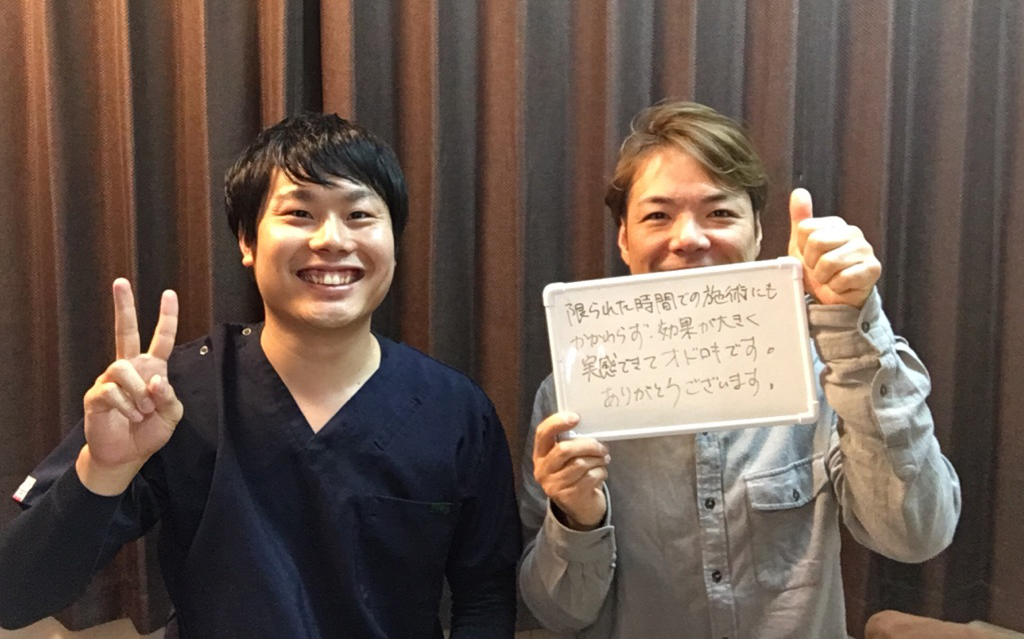 限られた時間での施術にも
かかわらず、効果が大きく
実感できてオドロキです。
ありがとうございます。